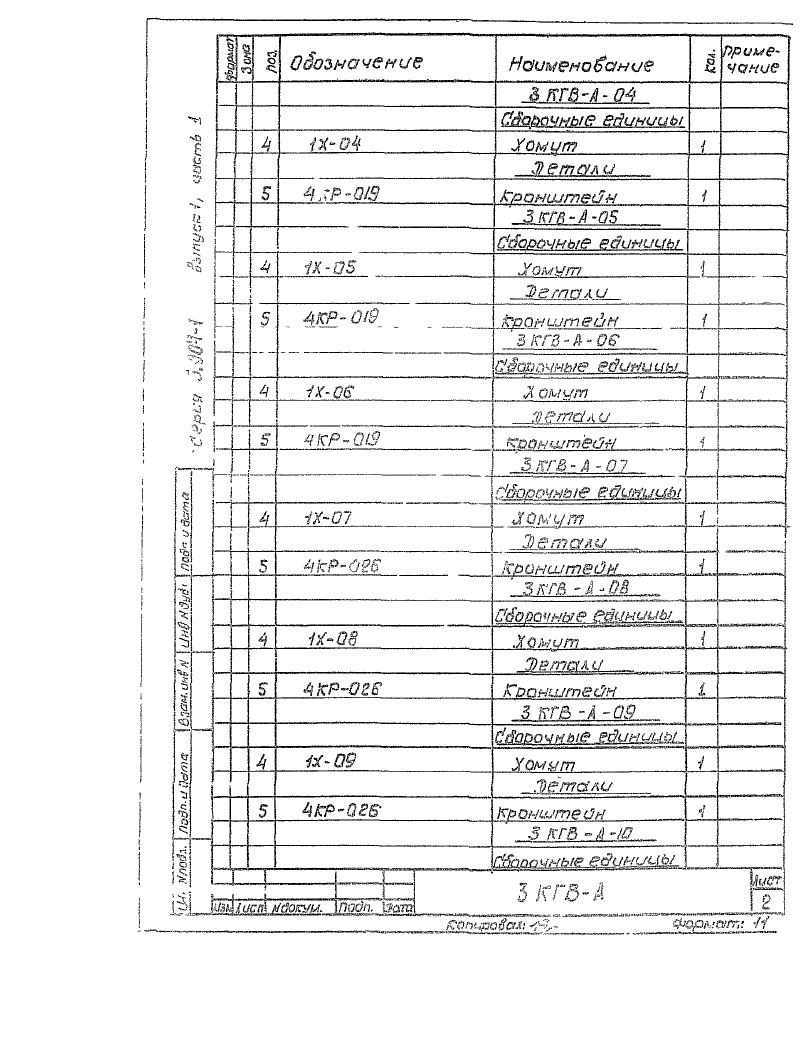 Формат Зона Поз. Обозначение Наименование Кол. Примечание
3 КГВ-А-04
Сборочные единицы
4 1Х-04 Хомут 1
Детали
5 4КР-019 Кронштейн 1
3 КГВ-А-05
Сборочные единицы
4 1Х-05 Хомут 1
Детали
5 4КР-019 Кронштейн 1
3 КГВ-А-06
Сборочные единицы
4 1Х-06 Хомут 1
Детали
5 4КР-019 Кронштейн 1
3 КГВ-А-07
Сборочные единицы
4 1Х-07 Хомут 1
Детали
5 4КР-026 Кронштейн 1
3 КГВ-А-08
Сборочные единицы
4 1Х-08 Хомут 1
Детали
5 4КР-026 Кронштейн 1
3 КГВ-А-09
Сборочные единицы
4 1Х-09 Хомут 1
Детали
5 4КР-026 Кронштейн 1
3 КГВ-А-10
Сборочные единицы
3 КГВ-А
Лист
2
Изм Лист № докум. Подп. Дата
Копировал:
Формат: 11
Серия 3.904-1 Выпуск 1, часть 1
Подп и дата
Инв № дубл
Взам. инв №
Подп. и дата
№ подл.